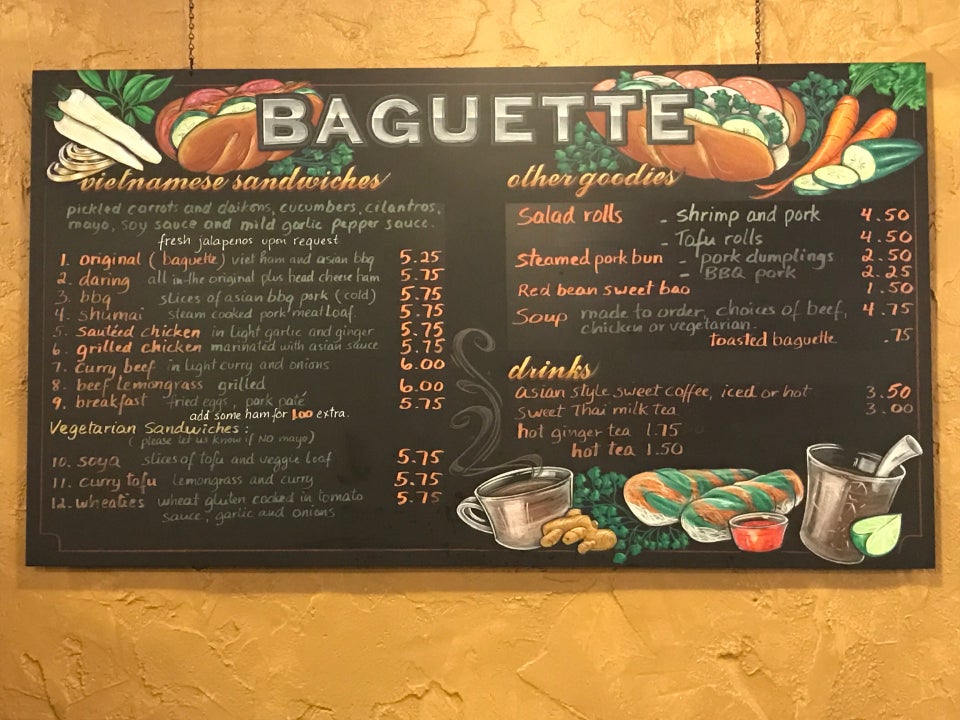 BAGUETTE
vietnamese sandwiches
pickled carrots and daikons, cucumbers, cilantros,
mayo, soy sauce and mild garlic pepper sauce.
fresh jalapenos upon request
1. original (baguette) viet ham and asian bbq 5.25
2. daring all in the original plus head cheese ham 5.75
3. bbq slices of asian bbq pork (cold) 5.75
4. shumai steam cooked pork meat loaf 5.75
5. sautéed chicken in light garlic and ginger 5.75
6. grilled chicken marinated with asian sauce 5.75
7. curry beef in light curry and onions 6.00
8. beef lemongrass grilled 6.00
9. breakfast fried eggs, pork paté 5.75
add some ham for 1.00 extra.
Vegetarian Sandwiches:
(please let us know if NO mayo)
10. soya slices of tofu and veggie loaf 5.75
11. curry tofu lemongrass and curry 5.75
12. wheaties wheat gluten cooked in tomato 5.75
sauce, garlic and onions
other goodies
Salad rolls - shrimp and pork 4.50
- Tofu rolls 4.50
Steamed pork bun - pork dumplings 2.50
- BBQ pork 2.25
Red bean sweet bao 1.50
Soup made to order, choices of beef, 4.75
chicken or vegetarian.
toasted baguette .75
drinks
asian style sweet coffee, iced or hot 3.50
sweet Thai milk tea 3.00
hot ginger tea 1.75
hot tea 1.50